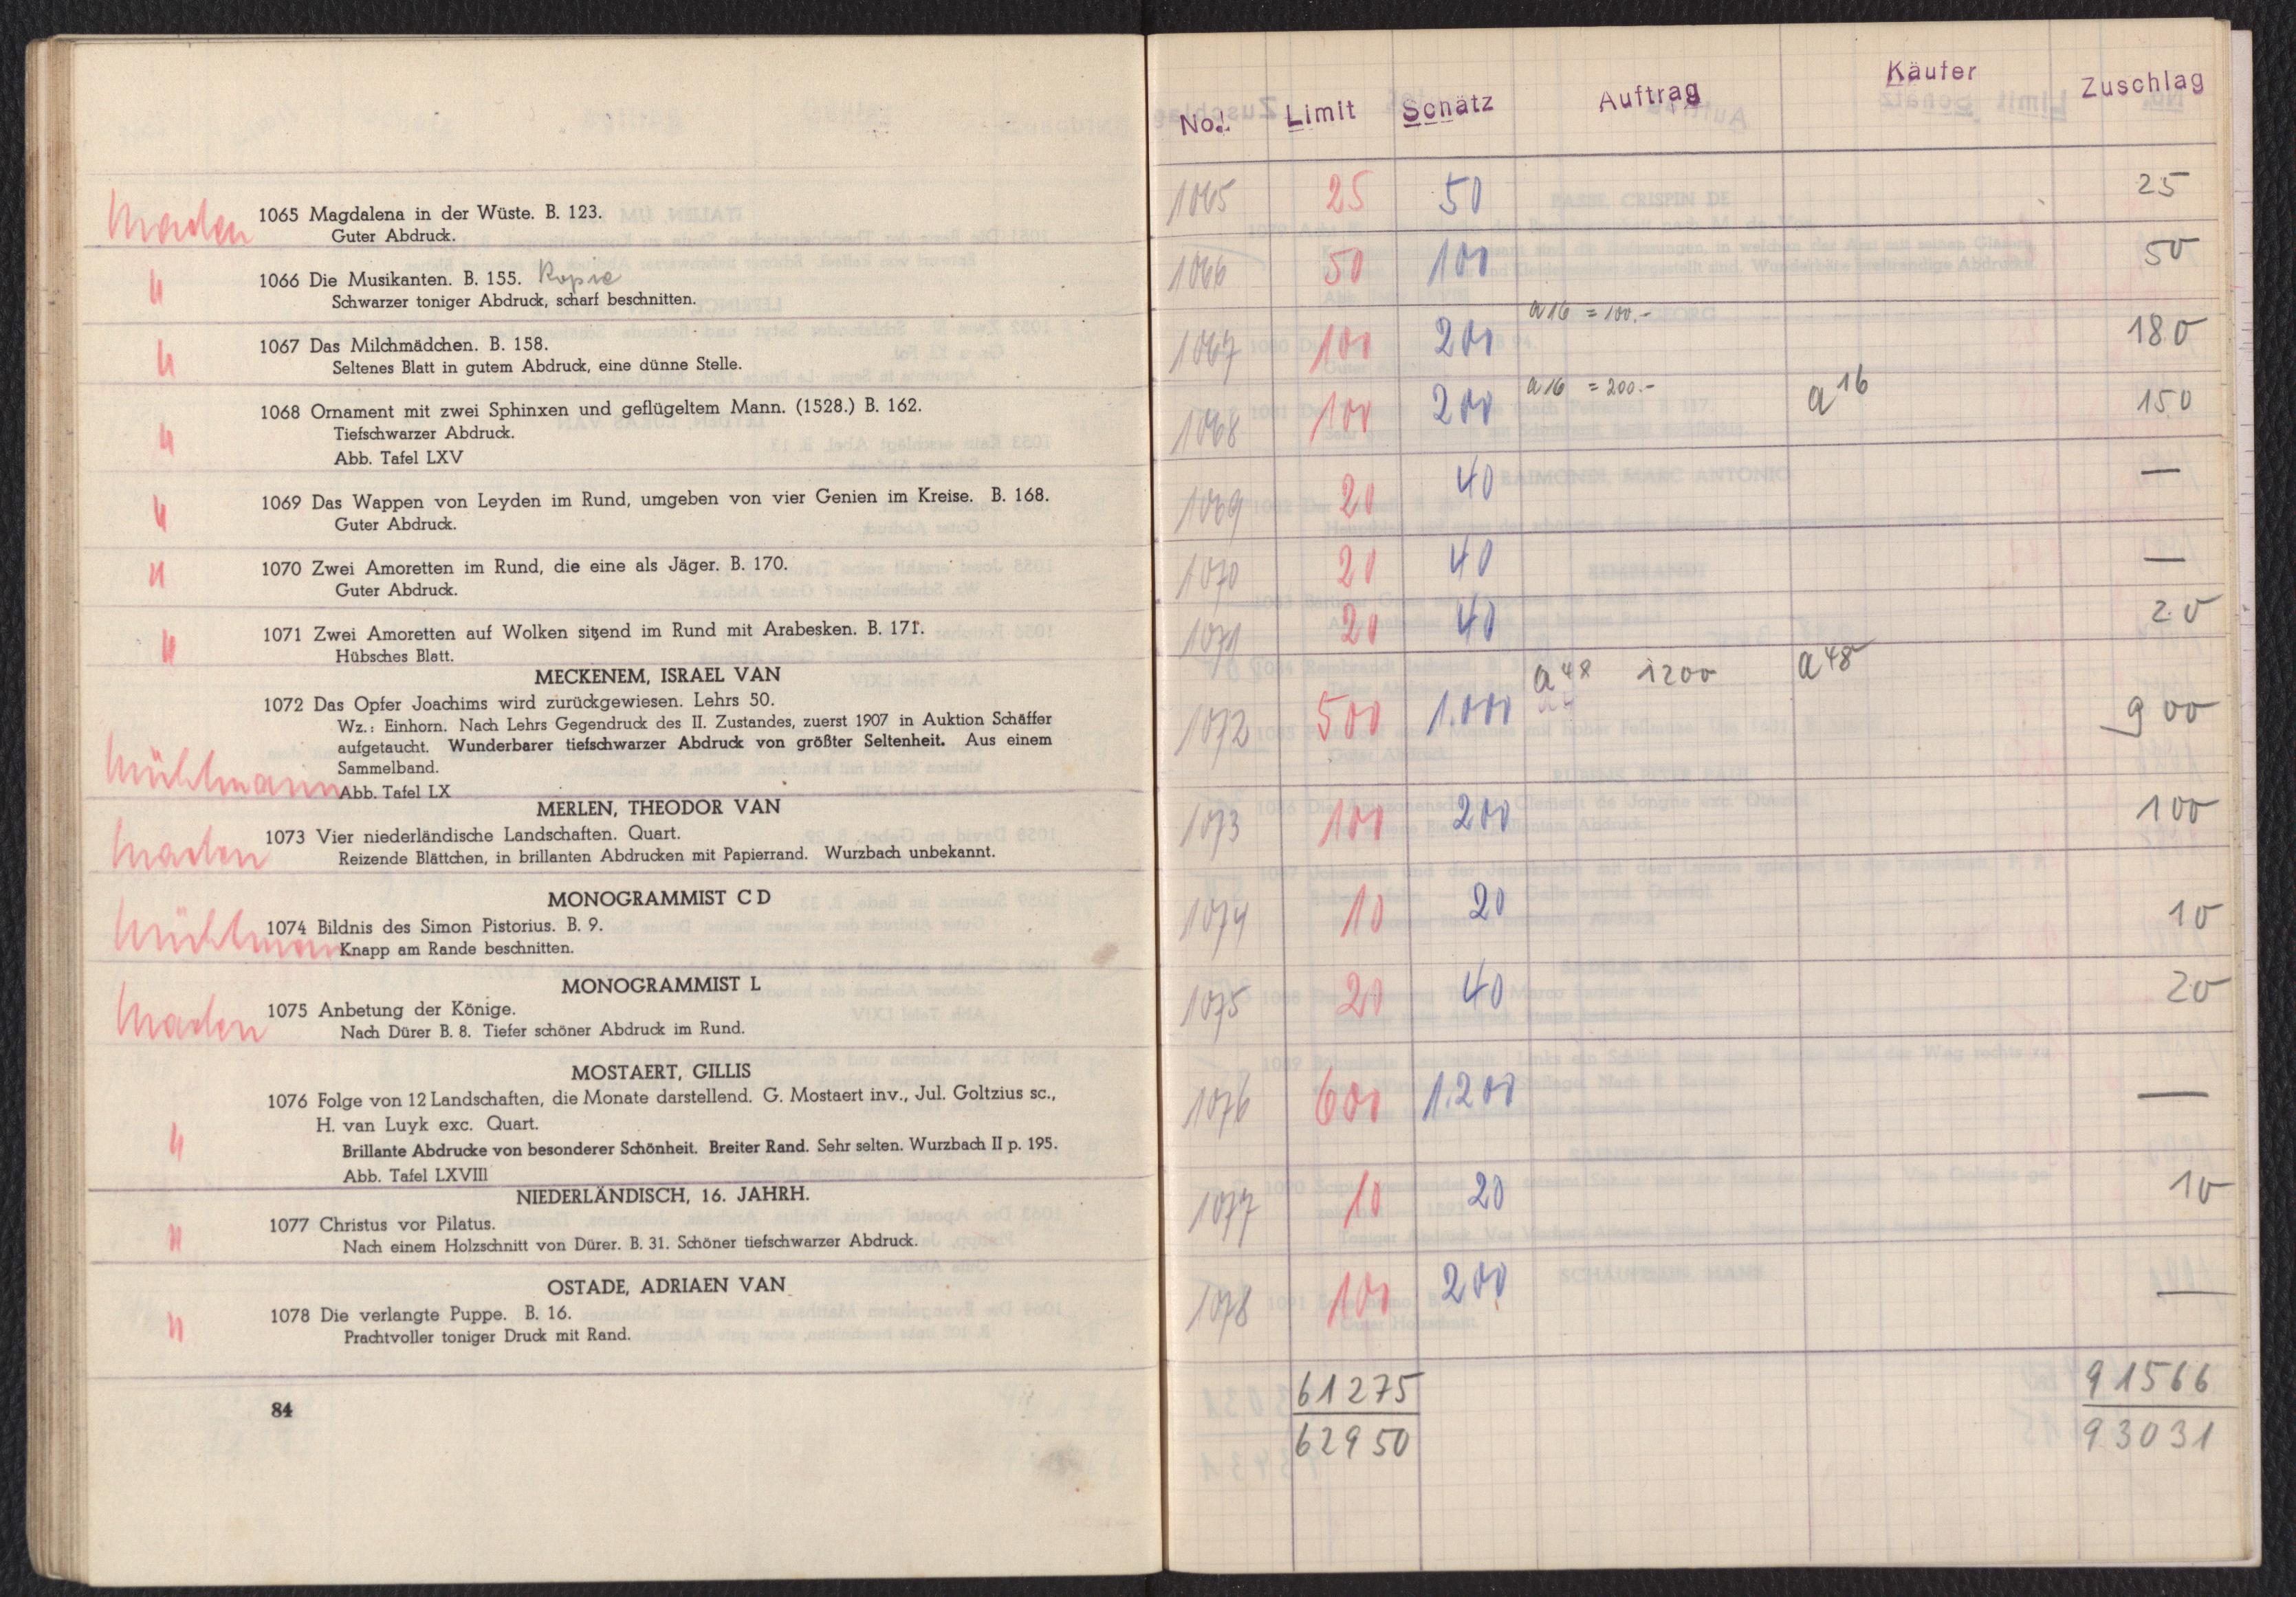 Maden
1065 Magdalena in der Wüste. B. 123.
Guter Abdruck.
"
1066 Die Musikanten. B. 155. Kopie
Schwarzer toniger Abdruck, scharf beschnitten.
"
1067 Das Milchmädchen. B. 158.
Seltenes Blatt in gutem Abdruck, eine dünne Stelle.
"
1068 Ornament mit zwei Sphinxen und geflügeltem Mann. (1528.) B. 162.
Tiefschwarzer Abdruck.
Abb. Tafel LXV
"
1069 Das Wappen von Leyden im Rund, umgeben von vier Genien im Kreise. B. 168.
Guter Abdruck.
"
1070 Zwei Amoretten im Rund, die eine als Jäger. B. 170.
Guter Abdruck.
"
1071 Zwei Amoretten auf Wolken sitzend im Rund mit Arabesken. B. 171.
Hübsches Blatt.
MECKENEM, ISRAEL VAN
1072 Das Opfer Joachims wird zurückgewiesen. Lehrs 50.
Wz.: Einhorn. Nach Lehrs Gegendruck des II. Zustandes, zuerst 1907 in Auktion Schäffer
aufgetaucht. Wunderbarer tiefschwarzer Abdruck von größter Seltenheit. Aus einem
Sammelband.
Mühlmann
Abb. Tafel LX
MERLEN, THEODOR VAN
Maden
1073 Vier niederländische Landschaften. Quart.
Reizende Blättchen, in brillanten Abdrucken mit Papierrand. Wurzbach unbekannt.
MONOGRAMMIST C D
Mühlmann
1074 Bildnis des Simon Pistorius. B. 9.
Knapp am Rande beschnitten.
MONOGRAMMIST L
Maden
1075 Anbetung der Könige.
Nach Dürer B. 8. Tiefer schöner Abdruck im Rund.
MOSTAERT, GILLIS
1076 Folge von 12 Landschaften, die Monate darstellend. G. Mostaert inv., Jul. Goltzius sc.,
H. van Luyk exc. Quart.
"
Brillante Abdrucke von besonderer Schönheit. Breiter Rand. Sehr selten. Wurzbach II p. 195.
Abb. Tafel LXVIII
NIEDERLÄNDISCH, 16. JAHRH.
1077 Christus vor Pilatus.
"
Nach einem Holzschnitt von Dürer. B. 31. Schöner tiefschwarzer Abdruck.
OSTADE, ADRIAEN VAN
1078 Die verlangte Puppe. B. 16.
"
Prachtvoller toniger Druck mit Rand.
84
No. Limit Schätz Auftrag Käufer Zuschlag
1065 25 50 25
1066 50 100 50
1067 100 200 a 16 = 100.- 180
1068 100 200 a 16 = 200.- a 16 150
1069 20 40 —
1070 20 40 —
1071 20 40 20
1072 500 1.000 a 48 1200 a 48 900
1073 100 200 100
1074 10 20 10
1075 20 40 20
1076 600 1.200 —
1077 10 20 10
1078 100 200 —
61275 91566
62950 93031